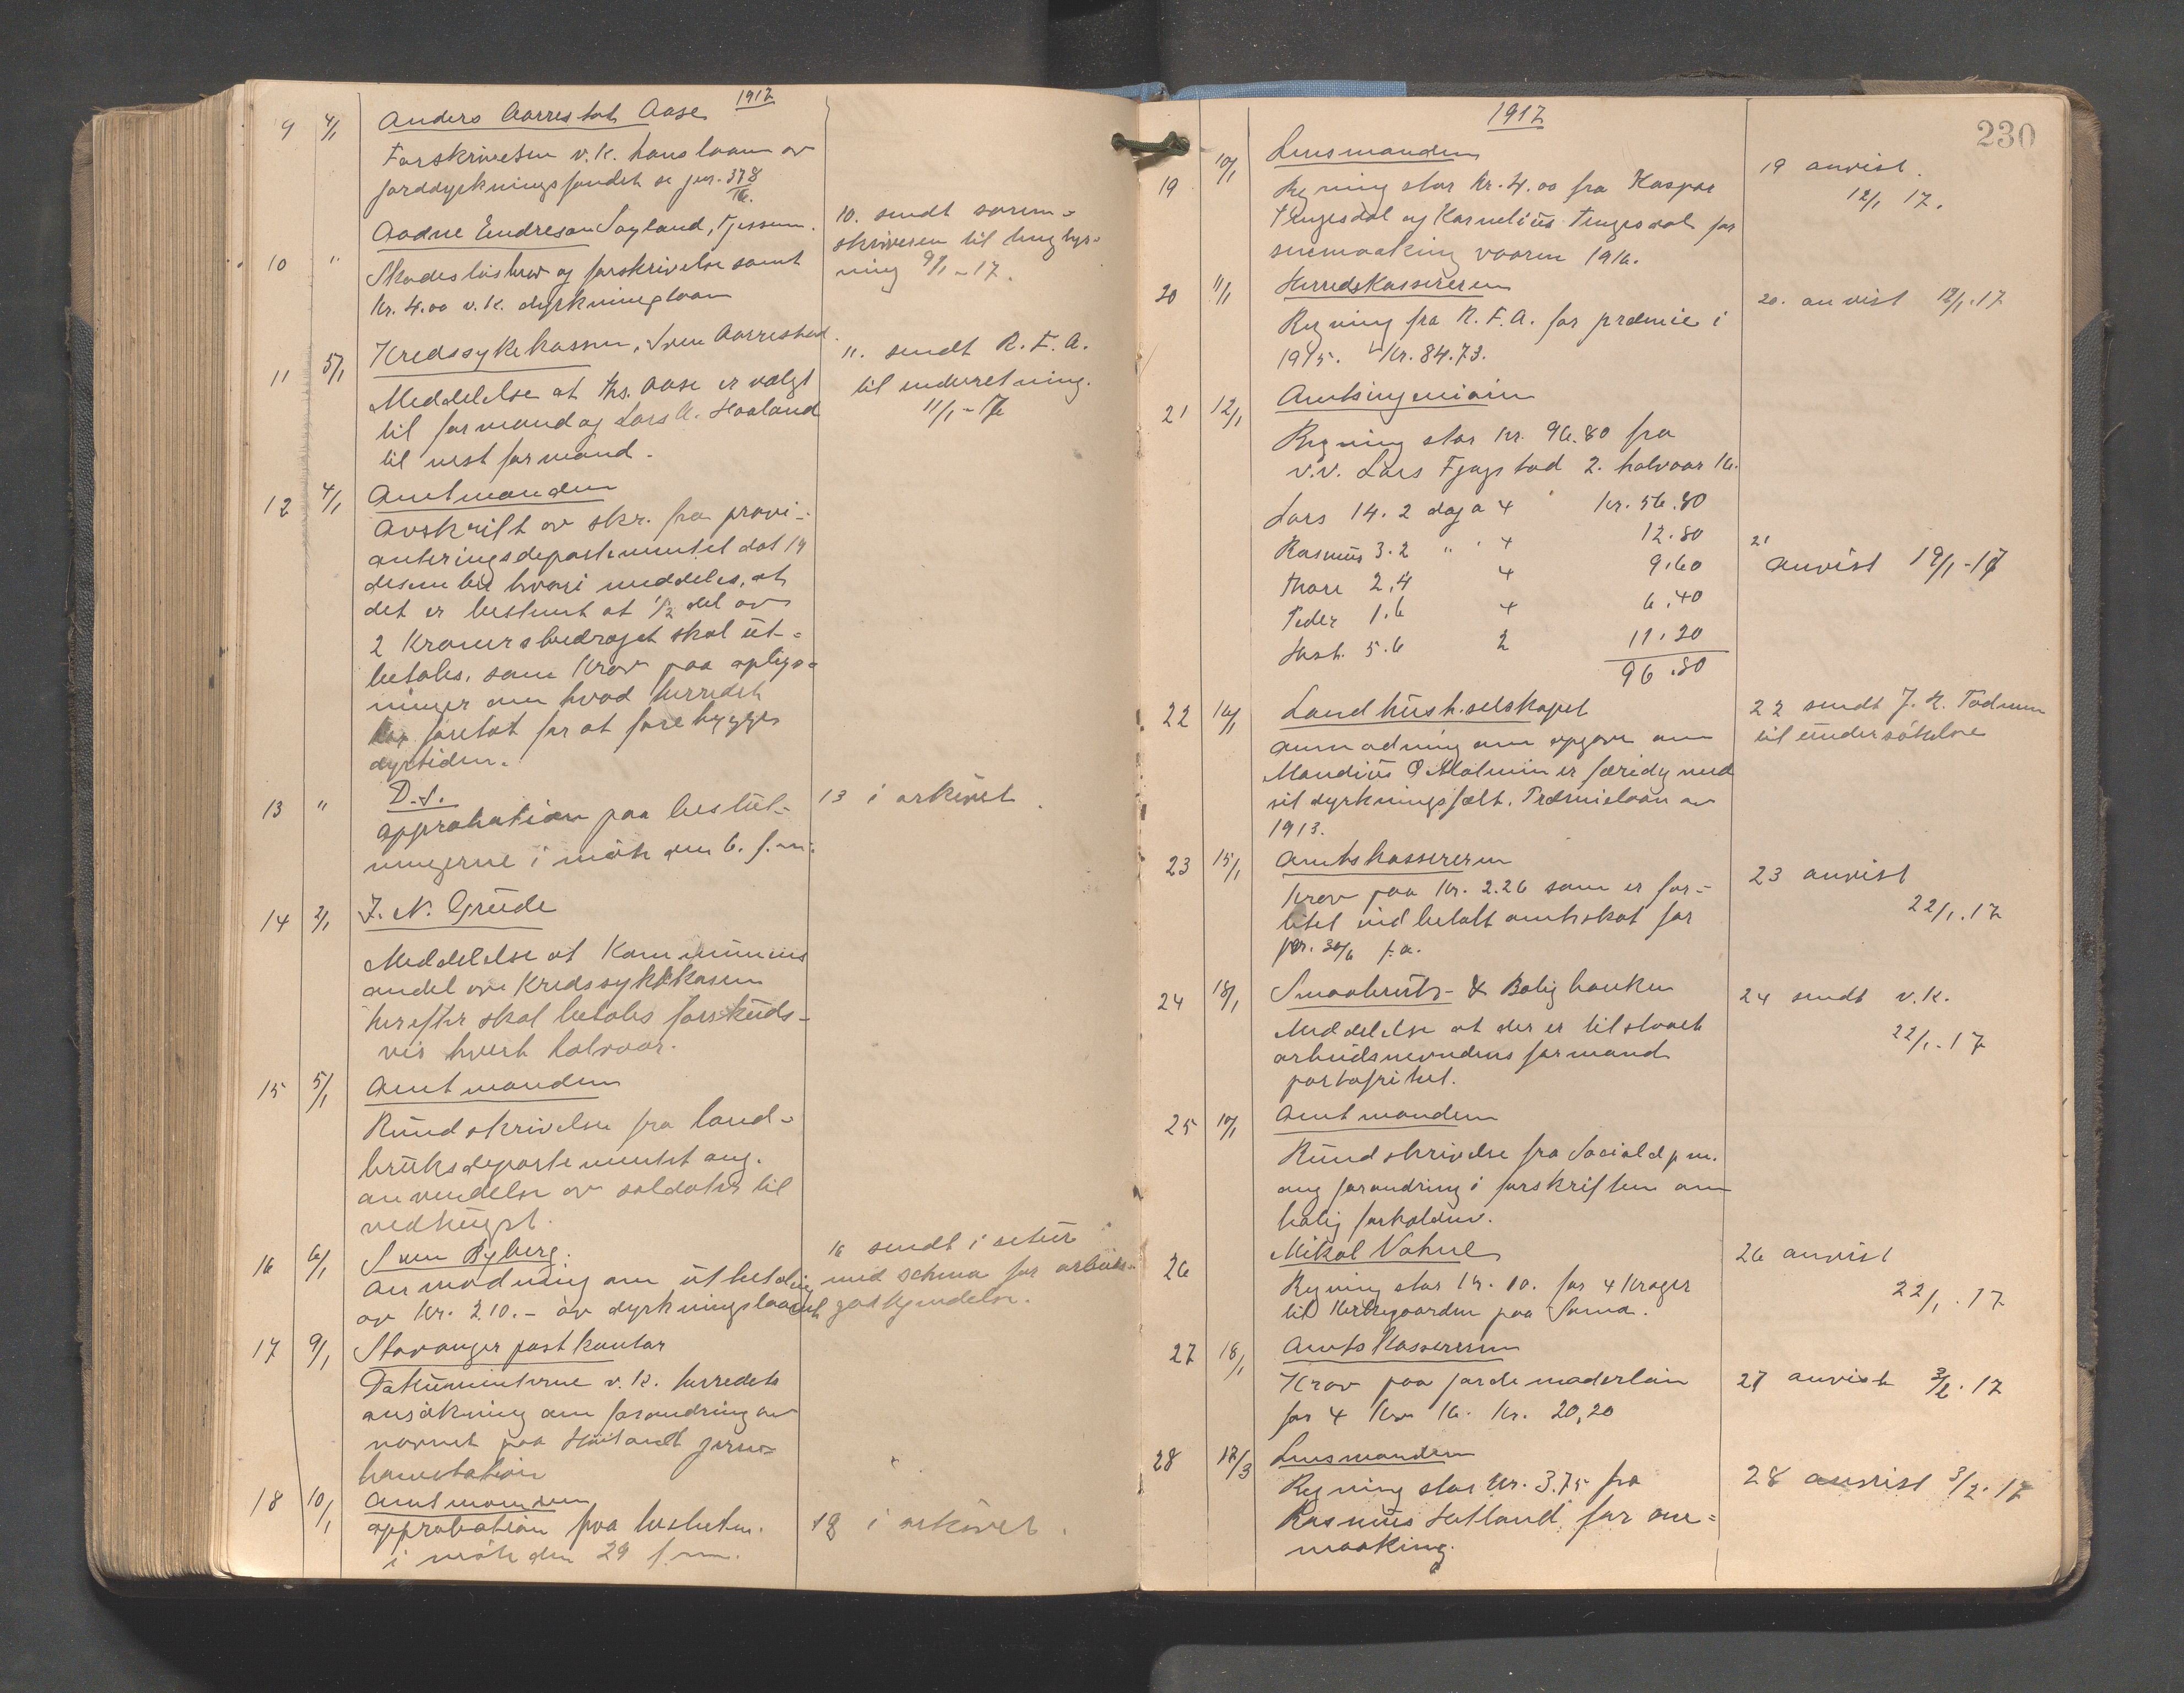 1917
9 4/1 Anders Aarrestad Aase
Forskrivelsen v.k. hans laan av
jorddyrkningsfondet se jnr. 378/16.
Aadne Endresen Søyland, Tjessem.
10 " Skadesløsbrev og forskrivelse samt
kr. 4.00 v.k. dyrkningslaan
10. sendt soren-
skriveren til tinglys-
ning 9/1-17.
11 5/1 Kredssykekassen, Sven Aarrestad.
Meddelelse at Ths. Aase er valgt
til formand og Lars A. Haaland
til nestformand.
11. sendt R.F.A.
til underretning.
11/1-17
12 4/1 Amtmanden
Avskrift av skr. fra provi-
anteringsdepartementet dat 14
desember hvori meddeles, at
det er bestemt at 1/2 del av
2 kronersbedraget skal ut-
betales, samt krav paa oplys-
ninger om hvad herredet
har foretat for at forebygge
dyrtiden.
13 " D.S.
approbation paa beslut-
ningerne i møte den 6. f.m.
13 i arkivet.
14 2/1 J. N. Grude
Meddelelse at kommunens
andel over Kredssykekassen
herefter skal betales forskuds-
vis hvert halvaar.
15 5/1 Amtmanden
Rundskrivelse fra land-
bruksdepartementet ang.
anvendelse av soldater til
vedhugst.
16 6/1 Sven Byberg.
Anmodning om utbetaling
av kr. 210.- av dyrkningslaanet
16 sendt i retur
med schema for arbeids-
godkjendelse.
17 9/1 Stavanger postkontor
Dokumenterne v.k. herredets
ansøkning om forandring av
navnet paa Høiland jern-
banestation
18 10/1 Amtmanden
approbation paa beslutn.
i møte den 29 f.m.
18 i arkivet.
230
1917
10/1 Lensmanden
19 Regning stor kr. 4.00 fra Kaspar
Tengesdal og Kornelius Tengesdal for
snemaaking vaaren 1916.
19 anvist.
12/1 17.
20 11/1 Herredskassereren
Regning fra R.F.A. for præmie i
1915. Kr. 84.73.
20. anvist 12/1.17
21 12/1 Amtsingeniøren
Regning stor kr. 96.80 fra
v.v. Lars Fjogstad 2. halvaar 16.
Lars 14.2 dag a 4 kr. 56.80
Rasmus 3.2 " " 4 12.80
Thore 2,4 4 9.60
Peder 1.6 4 6.40
Hest. 5.6 2 11.20
96.80
21 anvist 19/1-17
22 16/1 Landhush.selskapet
anmodning om opgave om
Mandius O Malmin er færidg med
sit dyrkningsfelt. Præmielaan av
1913.
22 sendt J. R. Todnem
til undersøkelse
23 15/1 Amtskassereren
krav paa kr. 2.26 som er for-
litet indbetalt amtsskat for
pr. 30/6 f.a.
23 anvist
22/1.17
24 18/1 Smaabruks- & Boligbanken
Meddelelse at der er tilstaaet
arbeidsnevndens formand
portofrihet.
24 sendt v.k.
22/1.17
25 10/1 Amtmanden
Rundskrivelse fra Socialdpm.
ang forandring i forskriften om
boligforholdene.
26 Mikal Vatne
Regning stor kr. 10. for 4 kroger
til Kirkegaarden paa Soma.
26 anvist
22/1.17
27 18/1 Amtskassereren
Krav paa jordemoderløn
for 4 Kv 16. Kr. 20,20
27 anvist 3/2.17
28 12/3 Lensmanden
Regning stor kr. 3.75 fra
Rasmus Hetland for sne-
maaking.
28 anvist 3/2.17